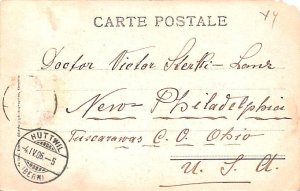 CARTE POSTALE
Doctor Victor Sterki-Lanz
New-Philadelphia
Tuscarawas C. O. Ohio
U. S. A.
HUTTWIL
-4.IV.06.-5
(BERN)